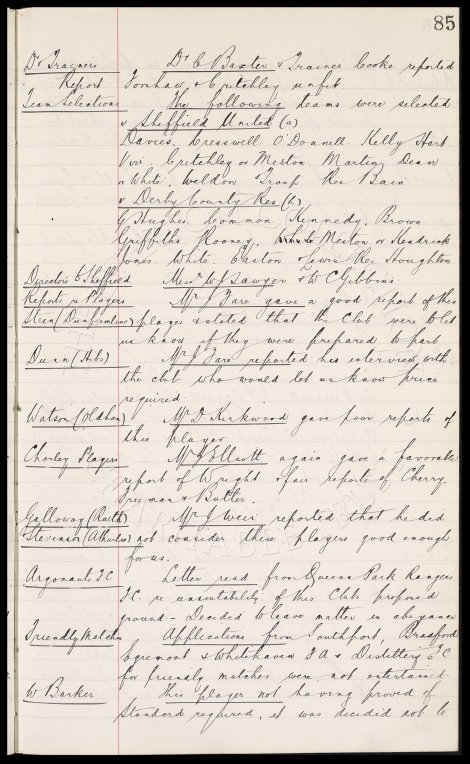 85
Dr & Trainers Dr C Baxter & Trainer Cooke reported
Report Fonshaw & Critchley unfit
Team Selections The following teams were selected
v Sheffield United (a)
Davies, Cresswell O'Donnell. Kelly Hart.
Virr, Critchley or Meston, Martin, Dean
or White, Weldon Troup Res Bain
v Derby County Res (h)
G Hughes Common, Kennedy, Brown
Griffiths, Rooney, Meston or Kendrick
Jones White, Easton Lewis Res Houghton
Directors to Sheffield Messrs W J Sawyer & W C Gibbins
Reports re Players Mr J Fare gave a good report of this
Stein (Dunfermline) player & stated that the Club were to let
us know if they were prepared to part
Dunn (Hibs) Mr J Fare reported his interview with
the club who would let us know price
required.
Watson (Oldham) Mr D Kirkwood gave poor reports of
this player.
Chorley Players Mr J Elliott again gave a favorable
report of Wright & fair reports of Cherry,
Freeman & Butler.
Galloway (Raith) Mr J Weir reported that he did
Stevenson (Arbroath) not consider these players good enough
for us.
Argonauts FC Letter read from Queens Park Rangers
F.C. re unsuitability of this Clubs proposed
ground - Decided to leave matter in abeyance
Friendly Matches Applications from Southport, Bradford
Egremont & Whitehaven F A & Distillery FC
for friendly matches were not entertained.
W Barker This player not having proved of
standard required, it was decided not to